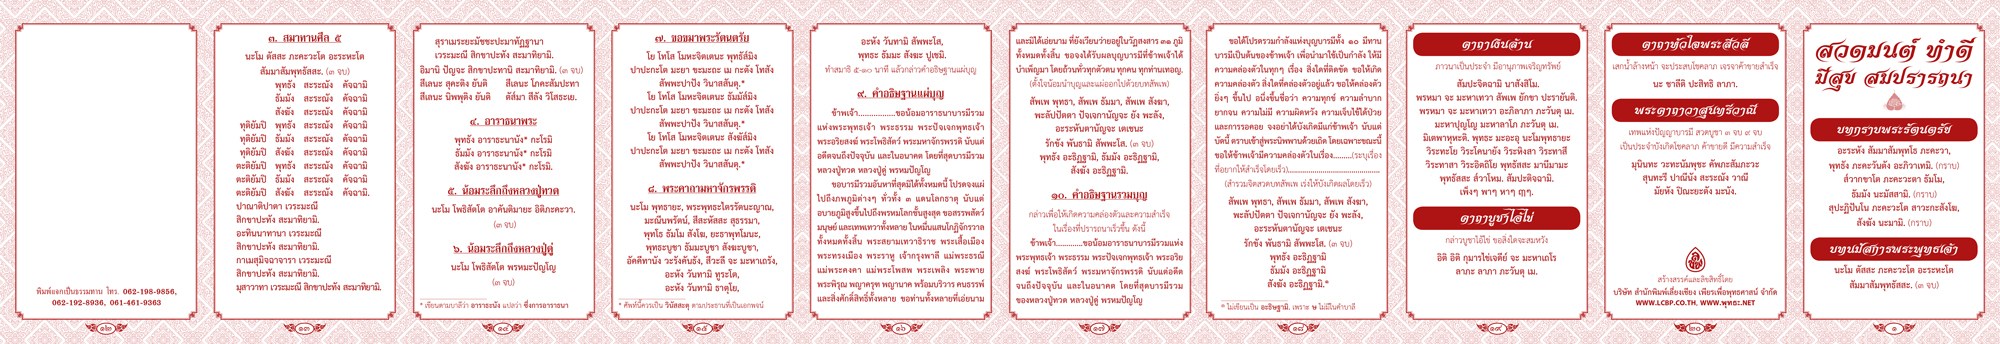 พิมพ์แจกเป็นธรรมทาน โทร. 062-198-9856,
062-192-8936, 061-461-9363
๑๒
๓. สมาทานศีล ๕
นะโม ตัสสะ ภะคะวะโต อะระหะโต
สัมมาสัมพุทธัสสะ. (๓ จบ)
พุทธัง สะระณัง คัจฉามิ
ธัมมัง สะระณัง คัจฉามิ
สังฆัง สะระณัง คัจฉามิ
ทุติยัมปิ พุทธัง สะระณัง คัจฉามิ
ทุติยัมปิ ธัมมัง สะระณัง คัจฉามิ
ทุติยัมปิ สังฆัง สะระณัง คัจฉามิ
ตะติยัมปิ พุทธัง สะระณัง คัจฉามิ
ตะติยัมปิ ธัมมัง สะระณัง คัจฉามิ
ตะติยัมปิ สังฆัง สะระณัง คัจฉามิ.
ปาณาติปาตา เวระมะณี
สิกขาปะทัง สะมาทิยามิ.
อะทินนาทานา เวระมะณี
สิกขาปะทัง สะมาทิยามิ.
กาเมสุมิจฉาจารา เวระมะณี
สิกขาปะทัง สะมาทิยามิ.
มุสาวาทา เวระมะณี สิกขาปะทัง สะมาทิยามิ.
๑๓
สุราเมระยะมัชชะปะมาทัฏฐานา
เวระมะณี สิกขาปะทัง สะมาทิยามิ.
อิมานิ ปัญจะ สิกขาปะทานิ สะมาทิยามิ. (๓ จบ)
สีเลนะ สุคะติง ยันติ สีเลนะ โภคะสัมปะทา
สีเลนะ นิพพุติง ยันติ ตัสมา สีลัง วิโสธะเย.
๔. อาราธนาพระ
พุทธัง อาราธะนานัง* กะโรมิ
ธัมมัง อาราธะนานัง* กะโรมิ
สังฆัง อาราธะนานัง* กะโรมิ.
๕. น้อมระลึกถึงหลวงปู่ทวด
นะโม โพธิสัตโต อาคันติมายะ อิติภะคะวา.
(๓ จบ)
๖. น้อมระลึกถึงหลวงปู่ดู่
นะโม โพธิสัตโต พรหมะปัญโญ
(๓ จบ)
* เขียนตามบาลีว่า อาราธะนัง แปลว่า ซึ่งการอาราธนา
๑๔
๗. ขอขมาพระรัตนตรัย
โย โทโส โมหะจิตเตนะ พุทธัส์มิง
ปาปะกะโต มะยา ขะมะถะ เม กะตัง โทสัง
สัพพะปาปัง วินาสสันตุ.*
โย โทโส โมหะจิตเตนะ ธัมมัส์มิง
ปาปะกะโต มะยา ขะมะถะ เม กะตัง โทสัง
สัพพะปาปัง วินาสสันตุ.*
โย โทโส โมหะจิตเตนะ สังฆัส์มิง
ปาปะกะโต มะยา ขะมะถะ เม กะตัง โทสัง
สัพพะปาปัง วินาสสันตุ.*
๘. พระคาถามหาจักรพรรดิ
นะโม พุทธายะ, พระพุทธะไตรรัตนะญาณ,
มะณีนพรัตน์, สีสะหัสสะ สุธรรมา,
พุทโธ ธัมโม สังโฆ, ยะธาพุทโมนะ,
พุทธะบูชา ธัมมะบูชา สังฆะบูชา,
อัคคีทานัง วะรังคันธัง, สีวะลี จะ มะหาเถรัง,
อะหัง วันทามิ ทูระโต,
อะหัง วันทามิ ธาตุโย,
* ศัพท์นี้ควรเป็น วินัสสะตุ ตามประธานที่เป็นเอกพจน์
๑๕
อะหัง วันทามิ สัพพะโส,
พุทธะ ธัมมะ สังฆะ ปูเชมิ.
ทำสมาธิ ๕-๑๐ นาที แล้วกล่าวคำอธิษฐานแผ่บุญ
๙. คำอธิษฐานแผ่บุญ
ข้าพเจ้า..................ขอน้อมอาราธนาบารมีรวม
แห่งพระพุทธเจ้า พระธรรม พระปัจเจกพุทธเจ้า
พระอริยสงฆ์ พระโพธิสัตว์ พระมหาจักรพรรดิ นับแต่
อดีตจนถึงปัจจุบัน และในอนาคต โดยที่สุดบารมีรวม
หลวงปู่ทวด หลวงปู่ดู่ พรหมปัญโญ
ขอบารมีรวมอันหาที่สุดมิได้ทั้งหมดนี้ โปรดจงแผ่
ไปถึงภพภูมิต่างๆ ทั่วทั้ง ๓ แดนโลกธาตุ นับแต่
อบายภูมิสูงขึ้นไปถึงพรหมโลกขั้นสูงสุด ขอสรรพสัตว์
มนุษย์ และเทพเทวาทั้งหลาย ในหมื่นแสนโกฏิจักรวาล
ทั้งหมดทั้งสิ้น พระสยามเทวาธิราช พระเสื้อเมือง
พระทรงเมือง พระราหู เจ้ากรุงพาลี แม่พระธรณี
แม่พระคงคา แม่พระโพสพ พระเพลิง พระพาย
พระพิรุณ พญาครุฑ พญานาค พร้อมบริวาร คนธรรพ์
และสิ่งศักดิ์สิทธิ์ทั้งหลาย ขอท่านทั้งหลายที่เอ่ยนาม
๑๖
และมิได้เอ่ยนาม ที่ยังเวียนว่ายอยู่ในวัฏสงสาร ๓๑ ภูมิ
ทั้งหมดทั้งสิ้น ของจงได้รับผลบุญบารมีที่ข้าพเจ้าได้
บำเพ็ญมา โดยถ้วนทั่วทุกตัวคน ทุกตน ทุกท่านเทอญ.
(ตั้งใจน้อมนำบุญและแผ่ออกไปด้วยบทสัพเพ)
สัพเพ พุทธา, สัพเพ ธัมมา, สัพเพ สังฆา,
พะลัปปัตตา ปัจเจกานัญจะ ยัง พะลัง,
อะระหันตานัญจะ เตเชนะ
รักขัง พันธามิ สัพพะโส. (๓ จบ)
พุทธัง อะธิฏฐามิ, ธัมมัง อะธิฏฐามิ,
สังฆัง อะธิฏฐามิ.
๑๐. คำอธิษฐานรวมบุญ
กล่าวเพื่อให้เกิดความคล่องตัวและความสำเร็จ
ในเรื่องที่ปรารถนาเร็วขึ้น ดังนี้
ข้าพเจ้า.............ขอน้อมอาราธนาบารมีรวมแห่ง
พระพุทธเจ้า พระธรรม พระปัจเจกพุทธเจ้า พระอริย
สงฆ์ พระโพธิสัตว์ พระมหาจักรพรรดิ นับแต่อดีต
จนถึงปัจจุบัน และในอนาคต โดยที่สุดบารมีรวม
ของหลวงปู่ทวด หลวงปู่ดู่ พรหมปัญโญ
๑๗
ขอได้โปรดรวมกำลังแห่งบุญบารมีทั้ง ๑๐ มีทาน
บารมีเป็นต้นของข้าพเจ้า เพื่อนำมาใช้เป็นกำลัง ให้มี
ความคล่องตัวในทุกๆ เรื่อง สิ่งใดที่ติดขัด ขอให้เกิด
ความคล่องตัว สิ่งใดที่คล่องตัวอยู่แล้ว ขอให้คล่องตัว
ยิ่งๆ ขึ้นไป อนึ่งขึ้นชื่อว่า ความทุกข์ ความลำบาก
ยากจน ความไม่มี ความผิดหวัง ความเจ็บไข้ได้ป่วย
และการรอคอย จงอย่าได้บังเกิดมีแก่ข้าพเจ้า นับแต่
บัดนี้ ตราบเข้าสู่พระนิพพานด้วยเถิด โดยเฉพาะขณะนี้
ขอให้ข้าพเจ้ามีความคล่องตัวในเรื่อง..........(ระบุเรื่อง
ที่อยากให้สำเร็จโดยเร็ว)..............................
(สำรวมจิตสวดบทสัพเพ เร่งให้บังเกิดผลโดยเร็ว)
สัพเพ พุทธา, สัพเพ ธัมมา, สัพเพ สังฆา,
พะลัปปัตตา ปัจเจกานัญจะ ยัง พะลัง,
อะระหันตานัญจะ เตเชนะ
รักขัง พันธามิ สัพพะโส. (๓ จบ)
พุทธัง อะธิฏฐามิ
ธัมมัง อะธิฏฐามิ
สังฆัง อะธิฏฐามิ.*
* ไม่เขียนเป็น อะธิษฐามิ, เพราะ ษ ไม่มีในคำบาลี
๑๘
คาถาเงินล้าน
ภาวนาเป็นประจำ มีอานุภาพเจริญทรัพย์
สัมปะจิตฉามิ นาสังสิโม.
พรหมา จะ มะหาเทวา สัพเพ ยักขา ปะรายันติ.
พรหมา จะ มะหาเทวา อะภิลาภา ภะวันตุ เม.
มะหาปุญโญ มะหาลาโภ ภะวันตุ เม.
มิเตพาหุหะติ. พุทธะ มะอะอุ นะโมพุทธายะ
วิระทะโย วิระโคนายัง วิระหิงสา วิระทาสี
วิระทาสา วิระอิตถิโย พุทธัสสะ มานีมามะ
พุทธัสสะ ส๎วาโหม. สัมปะติจฉามิ.
เพ็งๆ พาๆ หาๆ ฤๅๆ.
คาถาบูชาไอ้ไข่
กล่าวบูชาไอ้ไข่ ขอสิ่งใดจะสมหวัง
อิติ อิติ กุมารไข่เจดีย์ จะ มะหาเถโร
ลาภะ ลาภา ภะวันตุ เม.
๑๙
คาถาหัวใจพระสีวลี
เสกน้ำล้างหน้า จะประสบโชคลาภ เจรจาค้าขายสำเร็จ
นะ ชาลีติ ปะสิทธิ ลาภา.
พระคาถาวาสุนทรีวาณี
เทพแห่งปัญญาบารมี สวดบูชา ๓ จบ ๙ จบ
เป็นประจำบังเกิดโชคลาภ ค้าขายดี มีความสำเร็จ
มุนินทะ วะทะนัมพุชะ คัพภะสัมภะวะ
สุนทะรี ปาณีนัง สะระณัง วาณี
มัยหัง ปิณะยะตัง มะนัง.
สร้างสรรค์และลิขสิทธิ์โดย
บริษัท สำนักพิมพ์เลี่ยงเชียง เพียรเพื่อพุทธศาสน์ จำกัด
WWW.LCBP.CO.TH, WWW.พุทธะ.NET
๒๐
สวดมนต์ ทำดี
มีสุข สมปรารถนา
บทกราบพระรัตนตรัย
อะระหัง สัมมาสัมพุทโธ ภะคะวา,
พุทธัง ภะคะวันตัง อะภิวาเทมิ. (กราบ)
ส๎วากขาโต ภะคะวะตา ธัมโม,
ธัมมัง นะมัสสามิ. (กราบ)
สุปะฏิปันโน ภะคะวะโต สาวะกะสังโฆ,
สังฆัง นะมามิ. (กราบ)
บทนมัสการพระพุทธเจ้า
นะโม ตัสสะ ภะคะวะโต อะระหะโต
สัมมาสัมพุทธัสสะ. (๓ จบ)
๑